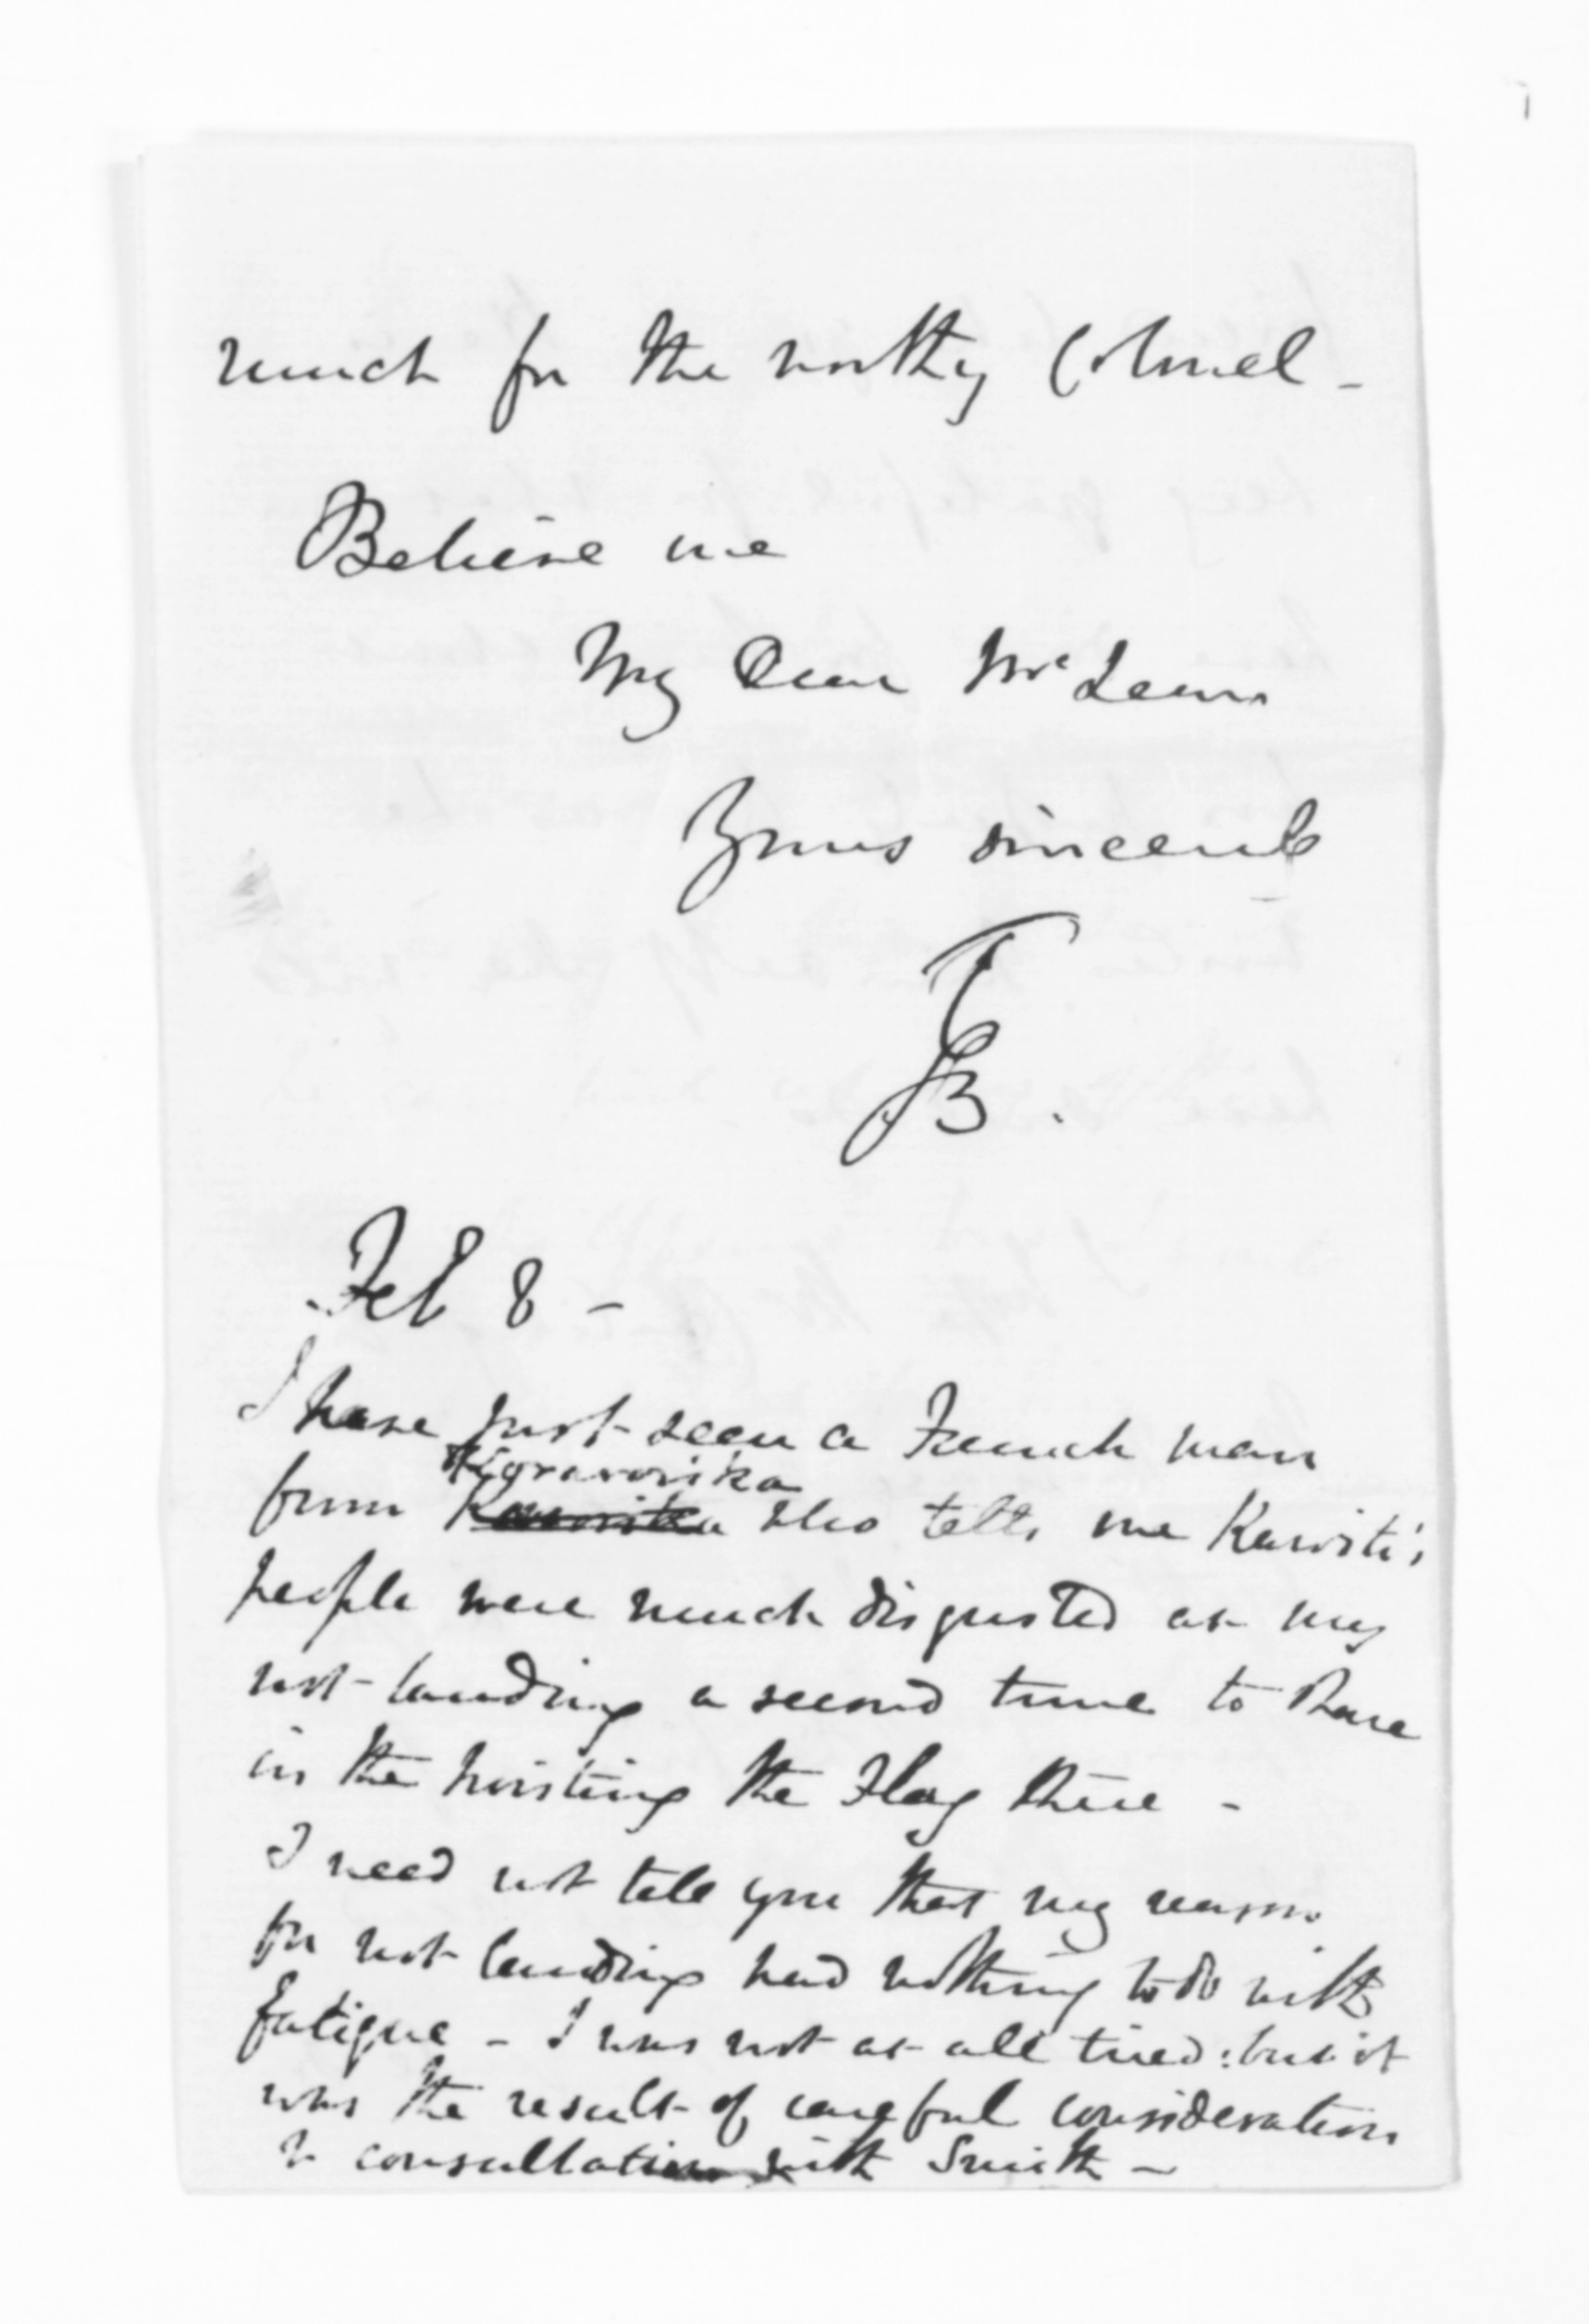 much for the worthy Colonel -
Believe me
My Dear McLean
Yours sincerely
GB.
Feb 8 -
I have just seen a French man
from Kororarika who tells me Kawiti's
people were much disgusted at my
not landing a second time to share
in the hoisting the Flag there -
I need not tell you that my reasons
for not landing had nothing to do with
fatigue - I was not at all tired: but it
was the result of careful consideration
& consultation with Smith -